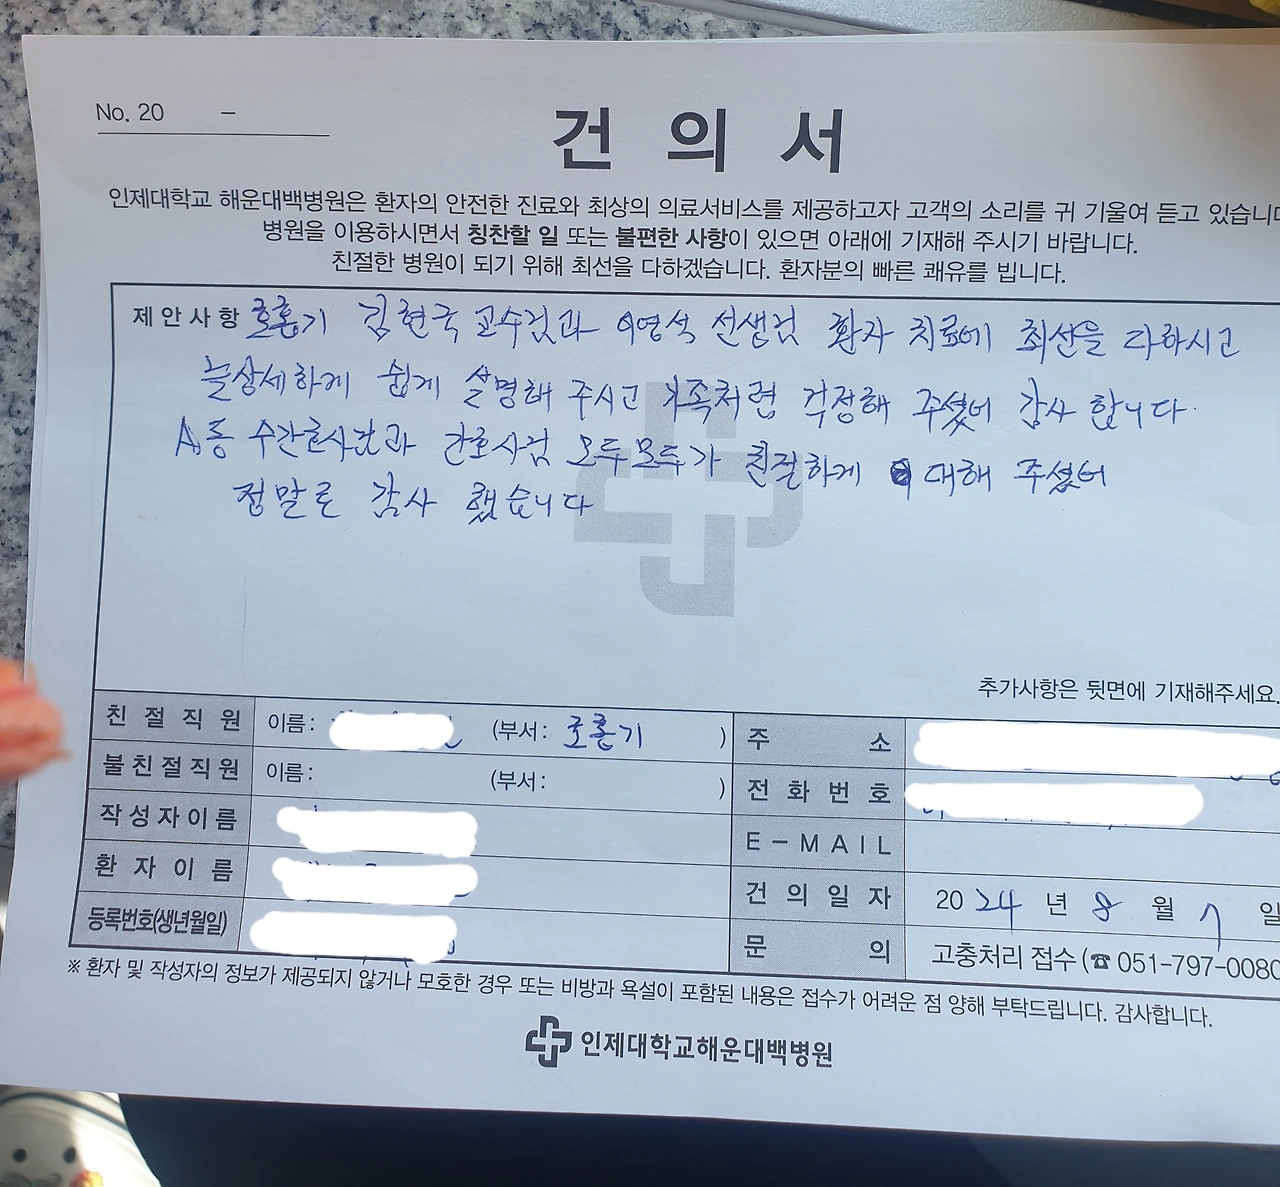 No. 20 –
건 의 서
인제대학교 해운대백병원은 환자의 안전한 진료와 최상의 의료서비스를 제공하고자 고객의 소리를 귀 기울여 듣고 있습니다
병원을 이용하시면서 칭찬할 일 또는 불편한 사항이 있으면 아래에 기재해 주시기 바랍니다.
친절한 병원이 되기 위해 최선을 다하겠습니다. 환자분의 빠른 쾌유를 빕니다.
제안사항 호흡기 김현국 교수님과 이영석 선생님 환자 치료에 최선을 다하시고
늘상세하게 쉽게 설명해 주시고 가족처럼 걱정해 주셨어 감사 합니다.
A동 수간호사님과 간호사님 모두모두가 친절하게 대해 주셨어
정말로 감사 했습니다
추가사항은 뒷면에 기재해주세요.
친 절 직 원 이름: (부서: 호흡기 )
불친절직원 이름: (부서: )
작성자이름
환 자 이 름
등록번호(생년월일)
주 소
전 화 번 호
E-MAIL
건 의 일 자 2024 년 8 월 7 일
문 의 고충처리 접수 (☎ 051-797-0080
※ 환자 및 작성자의 정보가 제공되지 않거나 모호한 경우 또는 비방과 욕설이 포함된 내용은 접수가 어려운 점 양해 부탁드립니다. 감사합니다.
인제대학교해운대백병원